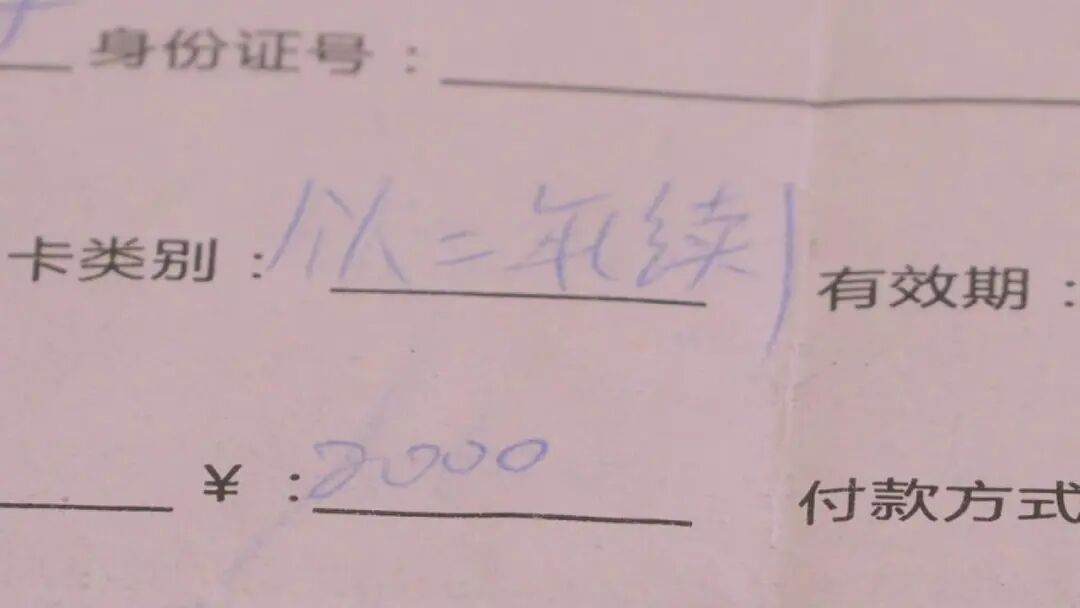 身份证号：
卡类别：二年续 有效期：
￥：2000 付款方式